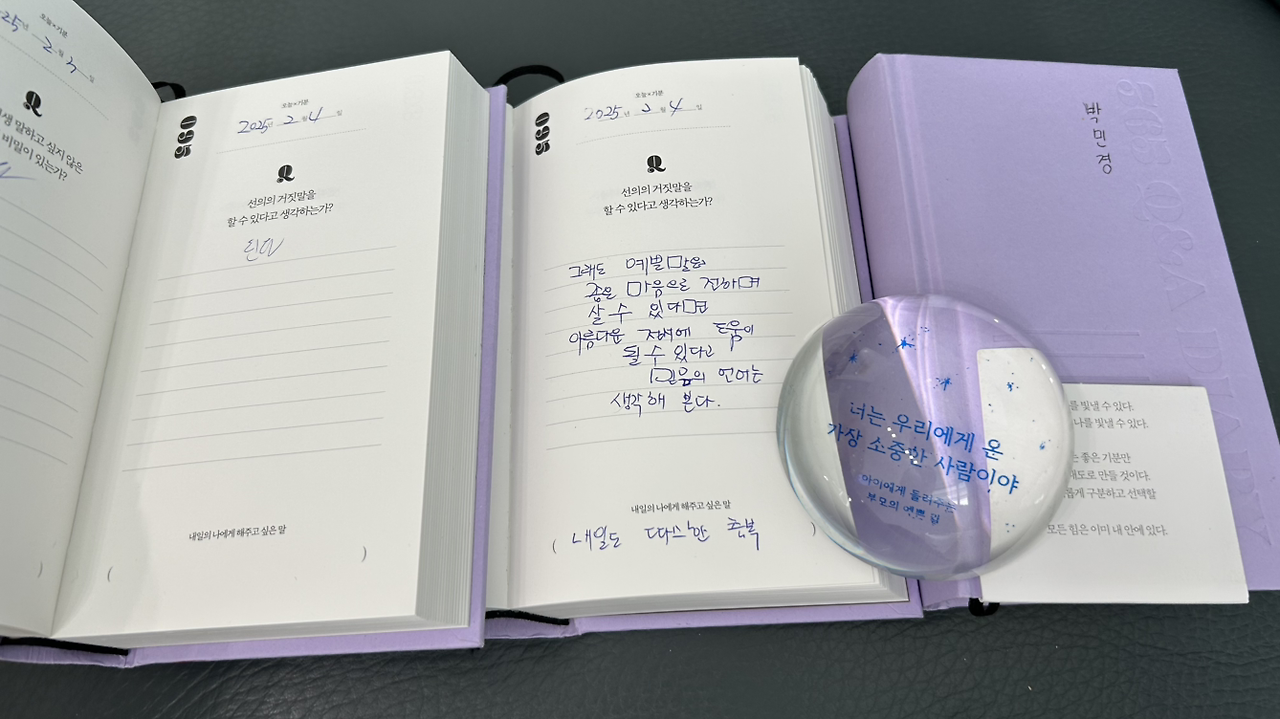 2025년 2월 4일
Q
말하고 싶지 않은
비밀이 있는가?
095
오늘×기분
2025년 2월 4일
Q
선의의 거짓말을
할 수 있다고 생각하는가?
내일의 나에게 해주고 싶은 말
( )
095
오늘×기분
2025년 2월 4일
Q
선의의 거짓말을
할 수 있다고 생각하는가?
그래도 예쁜말을
좋은 마음으로 전하며
살 수 있다면
아름다운 도움이
될 수 있다고
믿음의 언어는
생각해 본다.
내일의 나에게 해주고 싶은 말
( 내일도 따스한 축복
박민경
Q&A DIARY
너는 우리에게 온
가장 소중한 사람이야
아이에게 들려주는
부모의 예쁜 말
를 빛낼 수 있다.
나를 빛낼 수 있다.
는 좋은 기분만
태도로 만들 것이다.
롭게 구분하고 선택할
모든 힘은 이미 내 안에 있다.